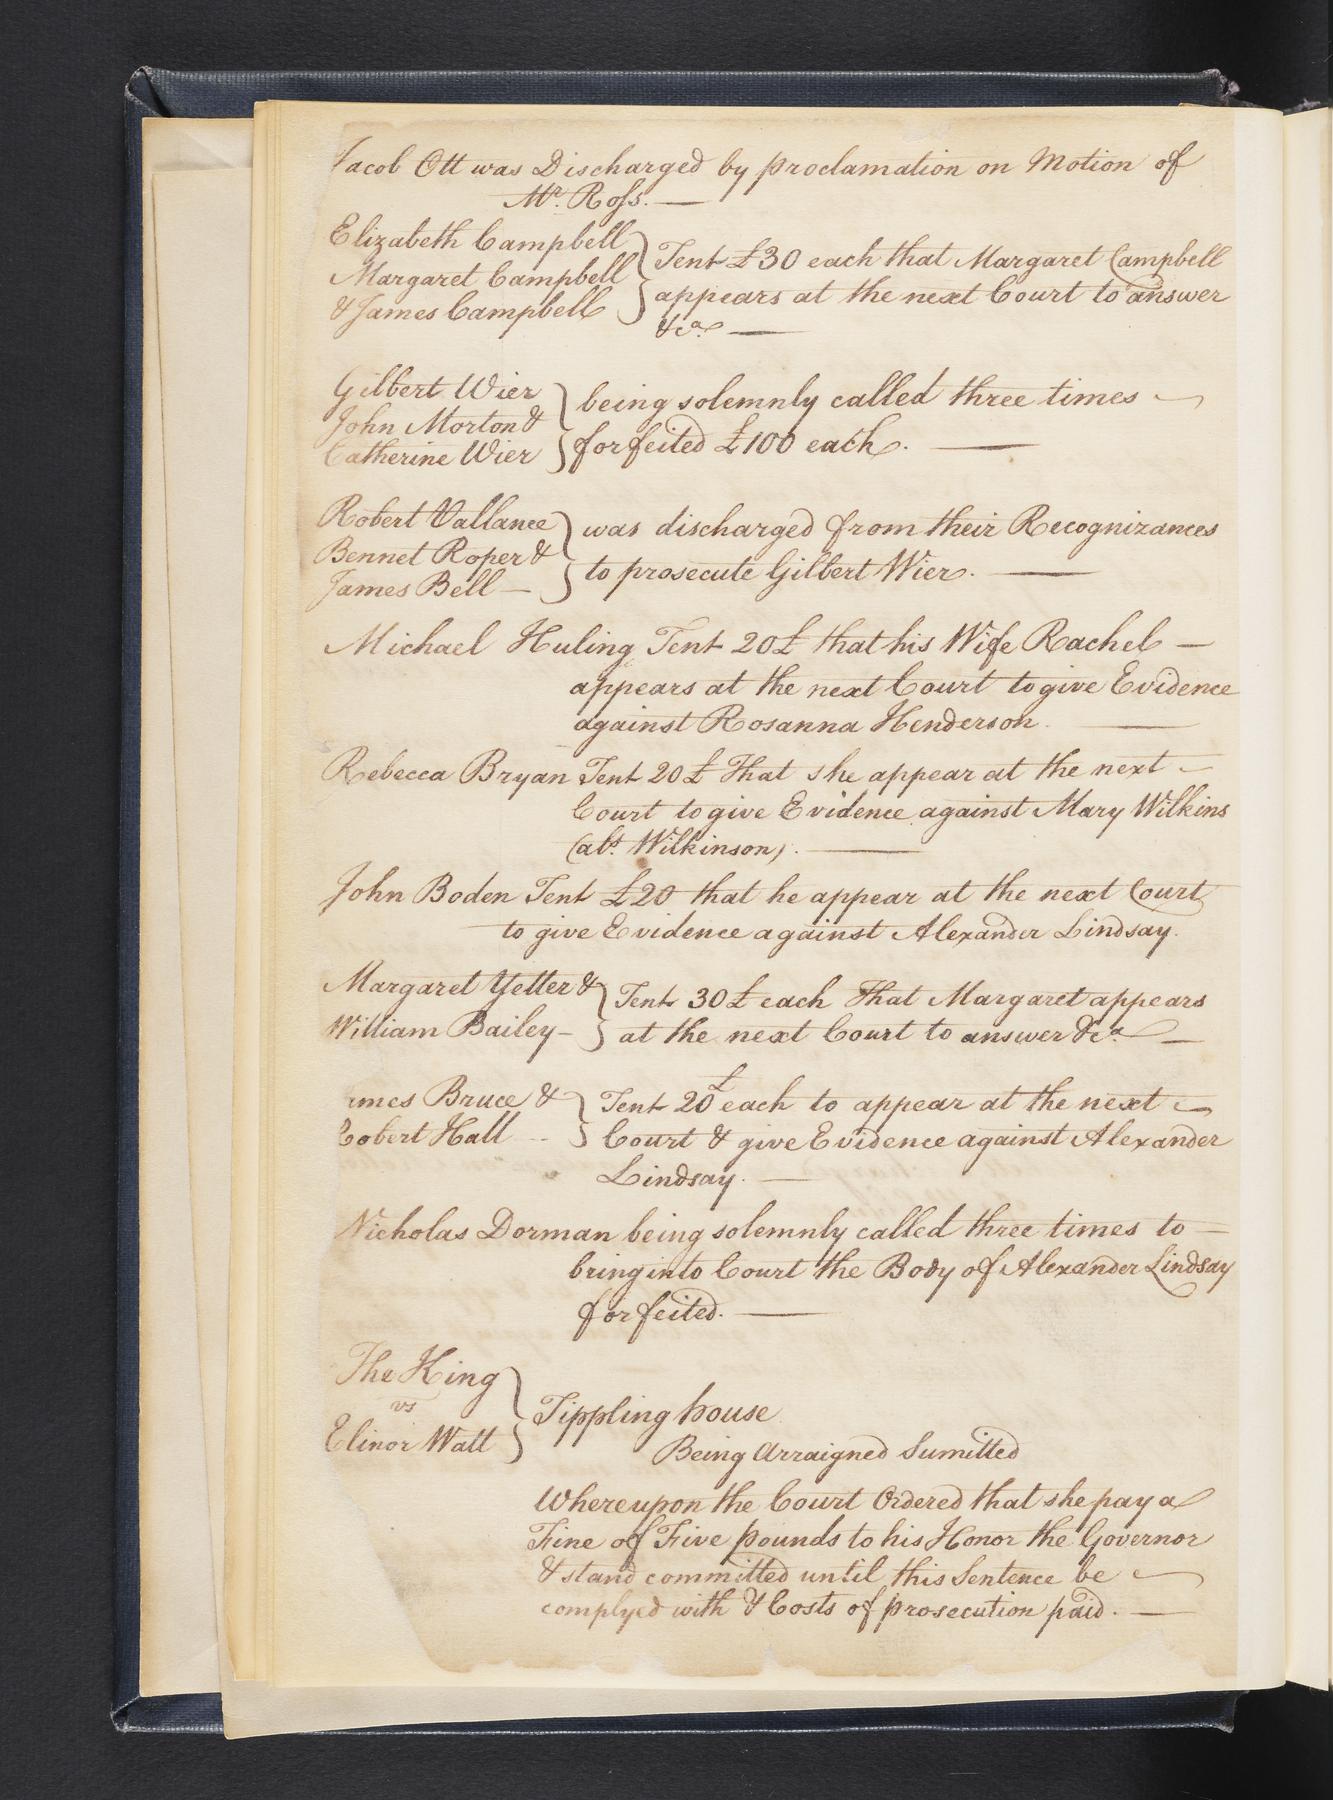 Jacob Ott was Discharged by proclamation on Motion of
Mr. Ross.
Elizabeth Campbell
Margaret Campbell
& James Campbell
Tent £30 each that Margaret Campbell
appears at the next Court to answer
&ca.
Gilbert Wier
John Morton &
Catherine Wier
being solemnly called three times
forfeited £100 each.
Robert Vallance
Bennet Roper &
James Bell
was discharged from their Recognizances
to prosecute Gilbert Wier.
Michael Huling Tent 20£ that his Wife Rachel
appears at the next Court to give Evidence
against Rosanna Henderson.
Rebecca Bryan Tent 20£ That she appear at the next
Court to give Evidence against Mary Wilkins
(als. Wilkinson).
John Boden Tent £20 that he appear at the next Court
to give Evidence against Alexander Lindsay.
Margaret Yetter &
William Bailey
Tent 30£ each That Margaret appears
at the next Court to answer &ca.
ames Bruce &
Robert Hall
Tent 20£ each to appear at the next
Court & give Evidence against Alexander
Lindsay.
Nicholas Dorman being solemnly called three times to
bring into Court the Body of Alexander Lindsay
forfeited.
The King
vs
Elinor Watt
Tippling house
Being Arraigned Sumitted
Whereupon the Court Ordered that she pay a
Fine of Five pounds to his Honor the Governor
& stand committed until this Sentence be
complyed with & Costs of prosecution paid.